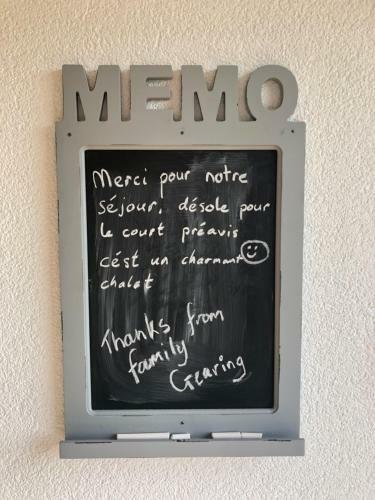 MEMO
Merci pour notre
séjour, désole pour
le court préavis
cést un charmant
chalet
Thanks from
family
Gearing